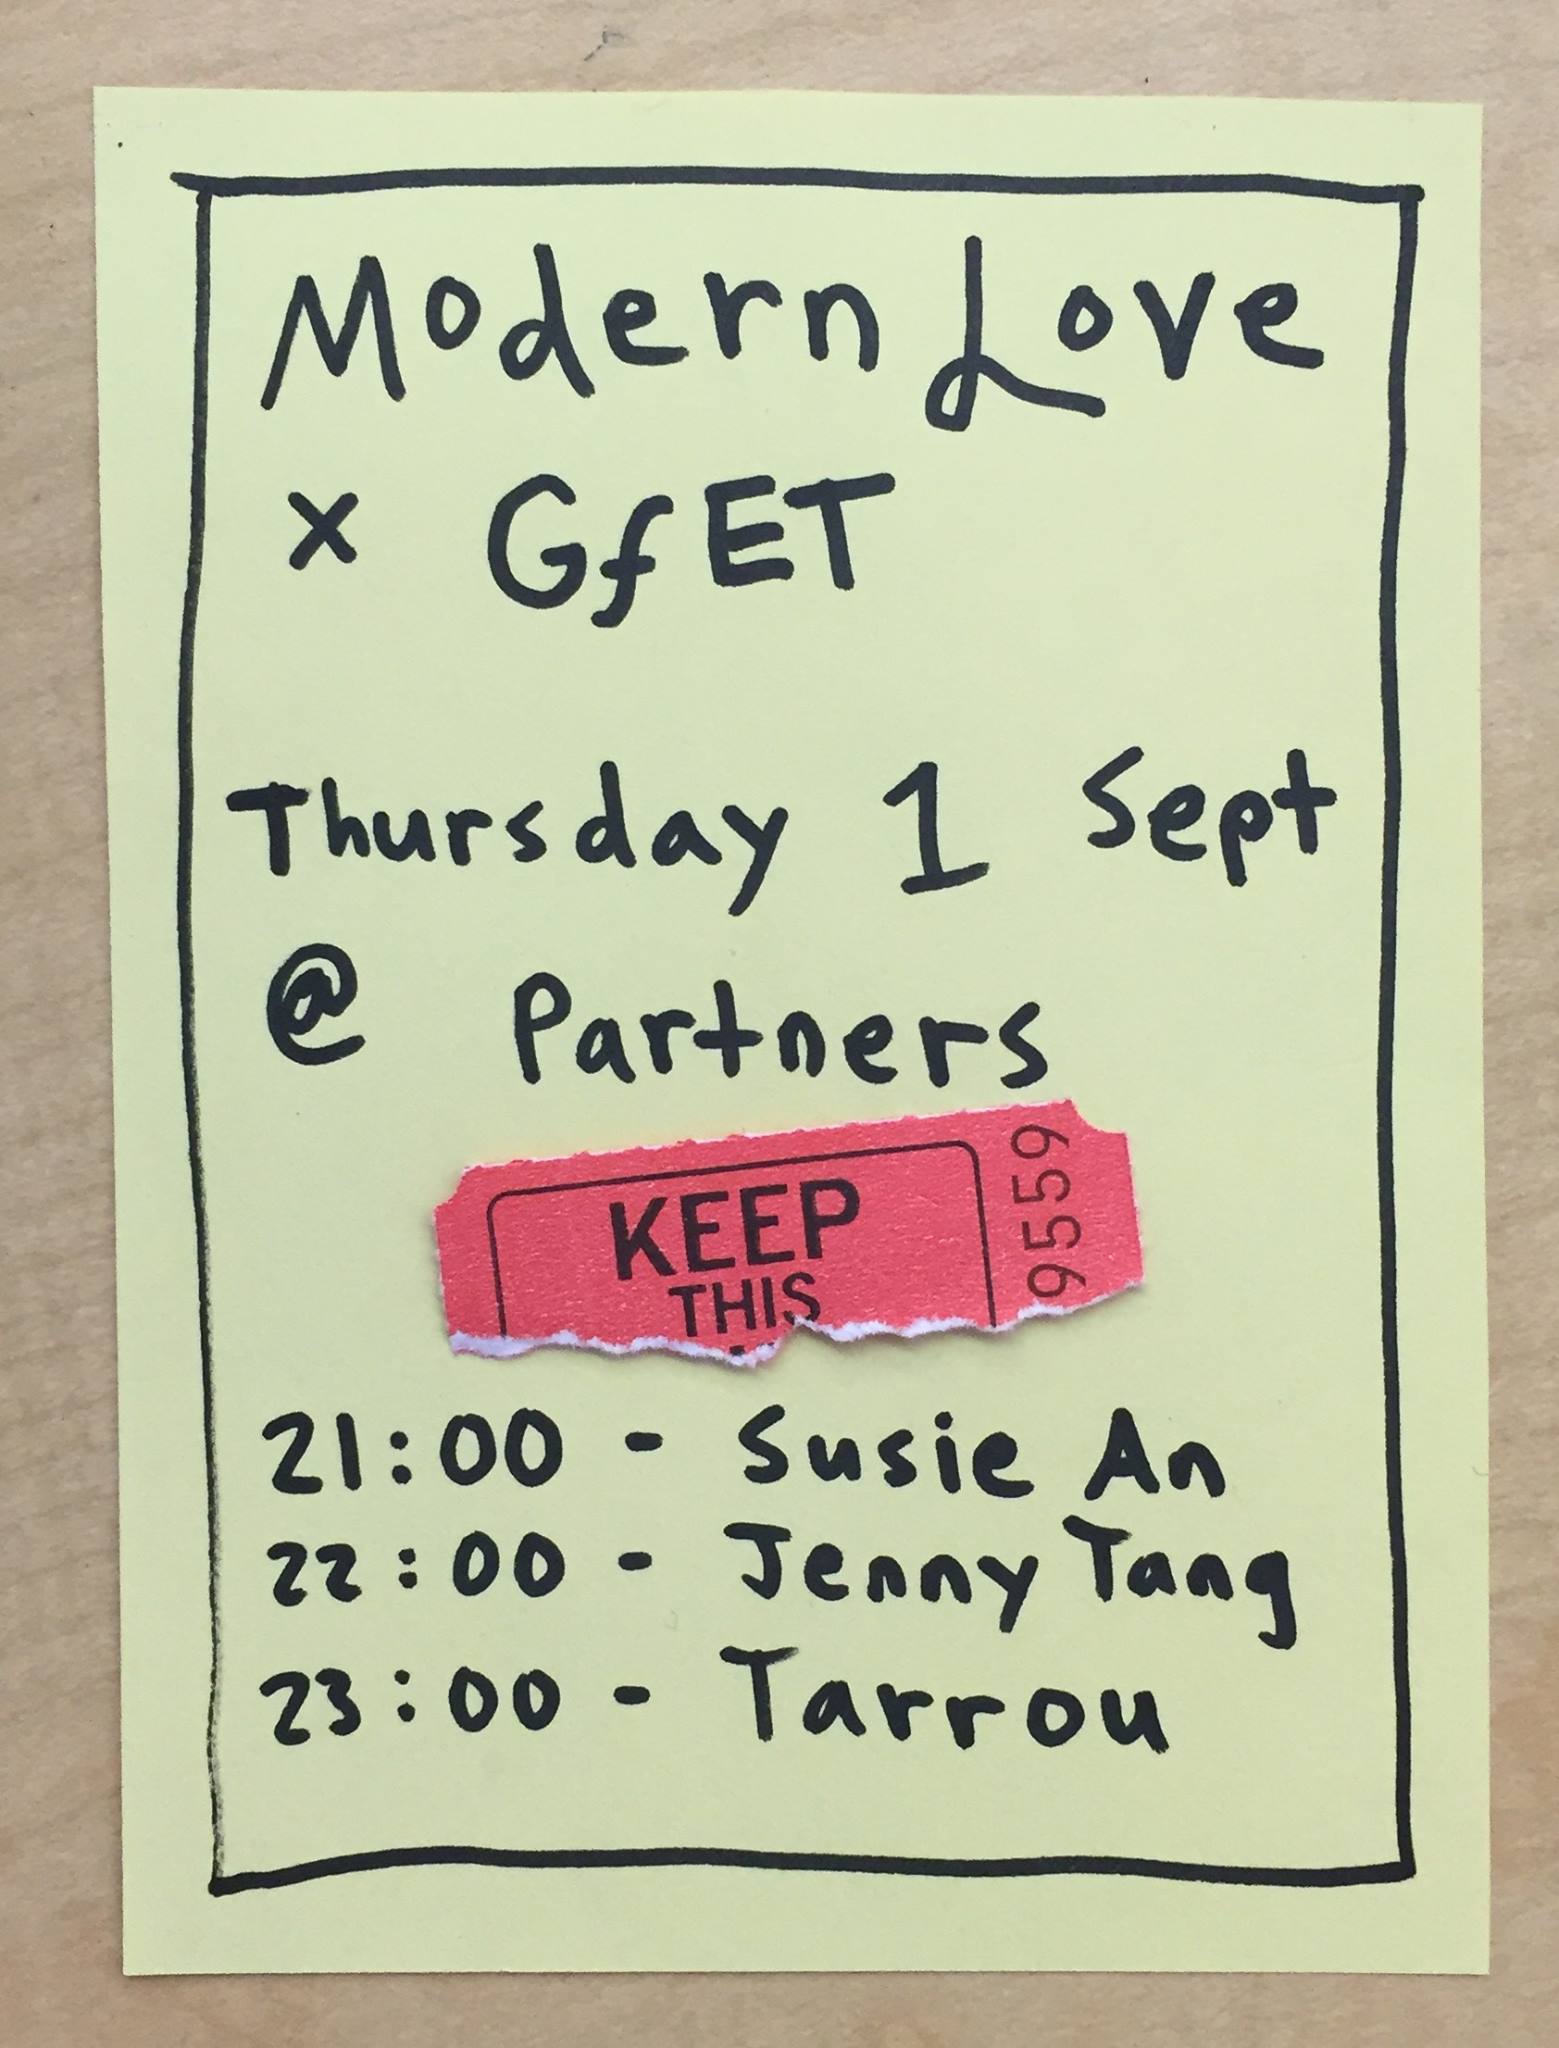 Modern Love
x GfET
Thursday 1 Sept
@ Partners
KEEP
THIS
9559
21:00 - Susie An
22:00 - Jenny Tang
23:00 - Tarrou